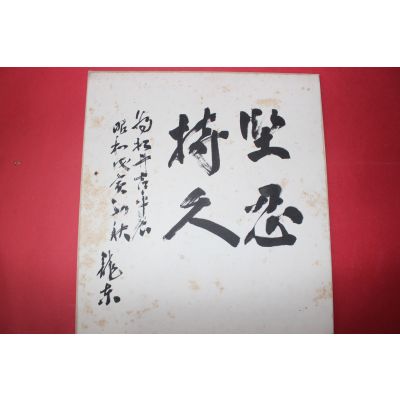 堅忍
持久
為松井吉平君
昭和戊亥初秋
龍東